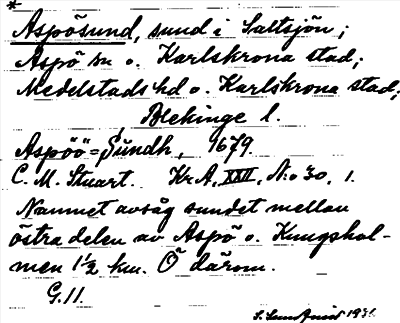 *
Aspösund, sund i Saltsjön;
Aspö sn o. Karlskrona stad;
Medelstads hd o. Karlskrona stad;
Blekinge l.
Aspöö=Sundh, 1679.
C. M. Stuart. Kr A, XXII, N:o 30, 1.
Namnet avsåg sundet mellan
östra delen av Aspö o. Kungshol-
men 1½ km. Ö därom.
G. 11.
1931.